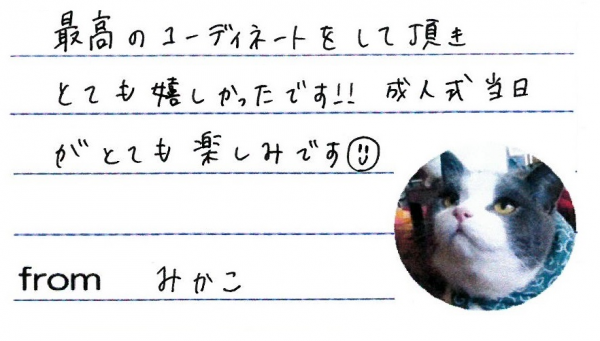 最高のコーディネートをして頂き
とても嬉しかったです!! 成人式当日
がとても楽しみです☺
from みかこ